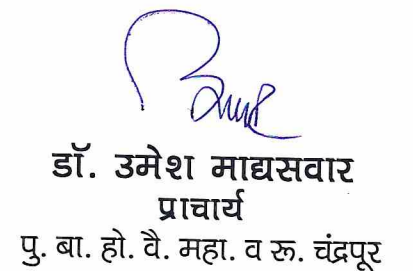 डॉ. उमेश माद्यसवार
प्राचार्य
पु. बा. हो. वै. महा. व रू. चंद्रपूर